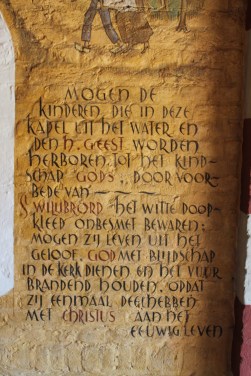 MOGEN DE
KINDEREN, DIE IN DEZE
KAPEL UIT HET WATER EN
DEN H. GEEST WORDEN
HERBOREN TOT HET KIND-
SCHAP GODS, DOOR VOOR-
BEDE VAN
S. WILLIBRORD HET WITTE DOOP-
KLEED ONBESMET BEWAREN:
MOGEN ZIJ LEVEN UIT HET
GELOOF, GOD MET BLIJDSCHAP
IN DE KERK DIENEN EN HET VUUR
BRANDEND HOUDEN, OPDAT
ZIJ EENMAAL DEEL HEBBEN
MET CHRISTUS AAN HET
EEUWIG LEVEN